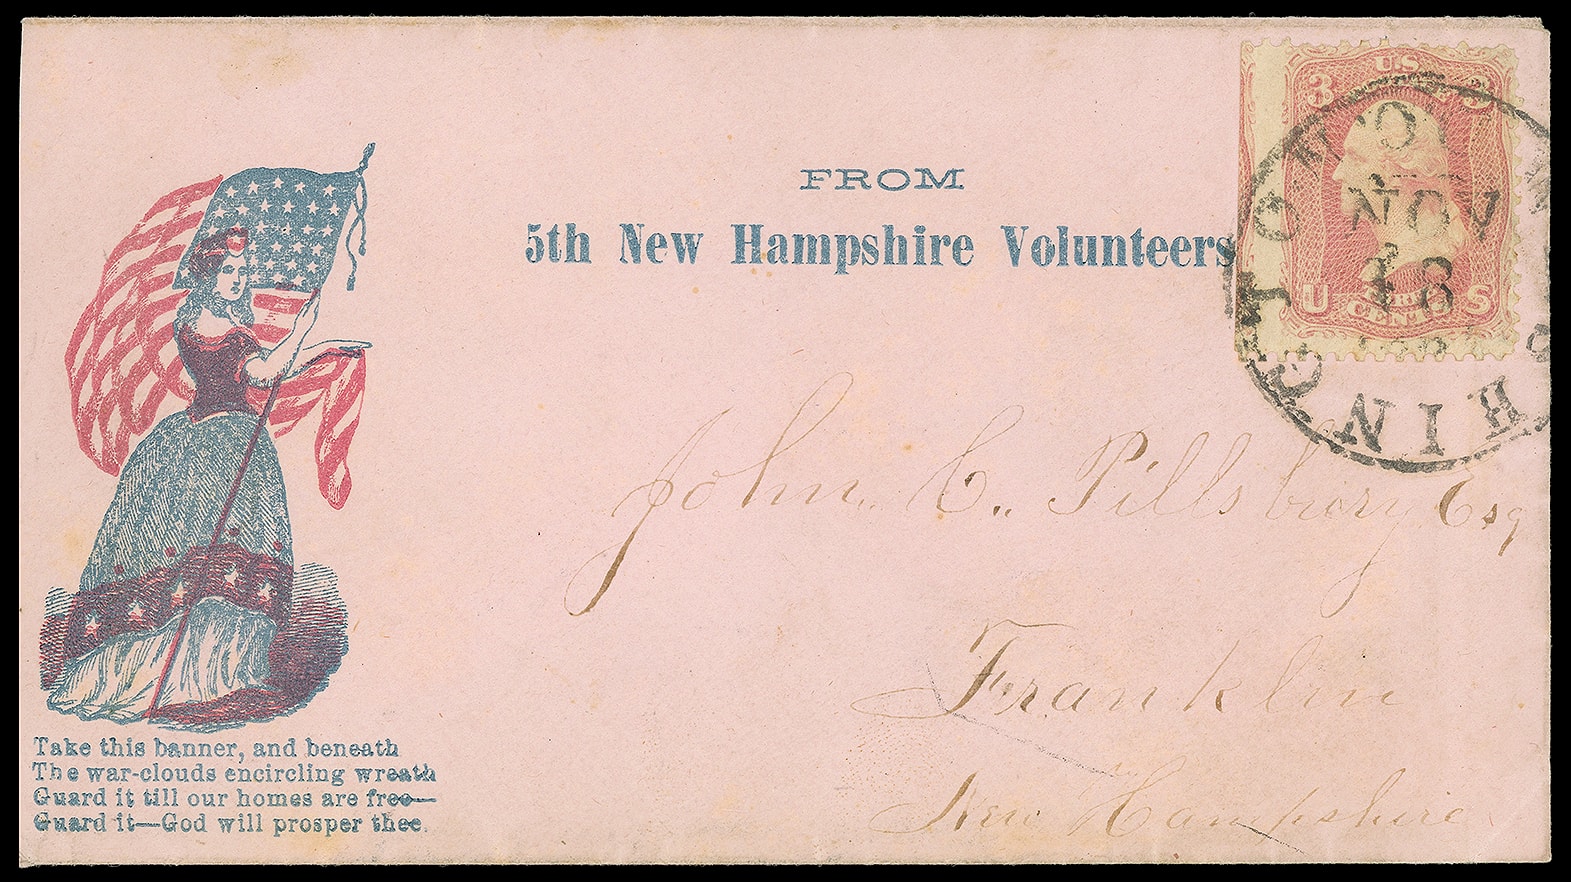 FROM
5th New Hampshire Volunteers
U.S.
3 3
NOV
18
U S
CENTS
John. C.. Pillsbury Esq
Franklin
New Hampshire
Take this banner, and beneath
The war-clouds encircling wreath
Guard it till our homes are free—
Guard it—God will prosper thee.